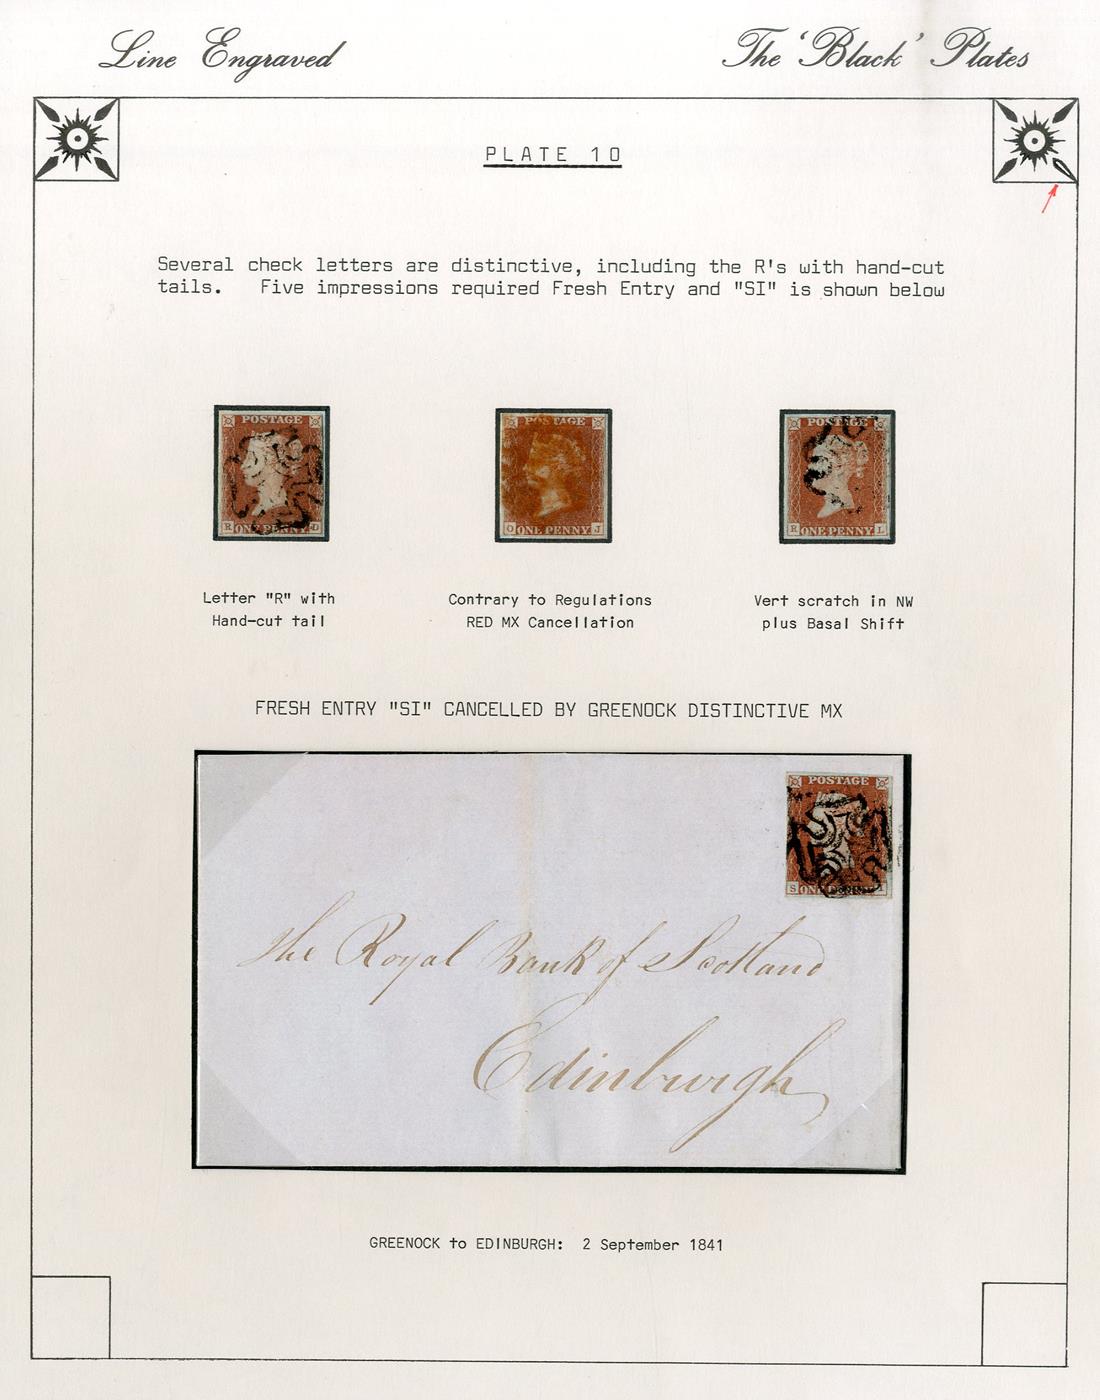 Line Engraved
The 'Black' Plates
PLATE 10
Several check letters are distinctive, including the R's with hand-cut
tails. Five impressions required Fresh Entry and "SI" is shown below
POSTAGE
R ONE PENNY D
POSTAGE
O ONE PENNY J
POSTAGE
R ONE PENNY L
Letter "R" with
Hand-cut tail
Contrary to Regulations
RED MX Cancellation
Vert scratch in NW
plus Basal Shift
FRESH ENTRY "SI" CANCELLED BY GREENOCK DISTINCTIVE MX
POSTAGE
S ONE PENNY I
The Royal Bank of Scotland
Edinburgh
GREENOCK to EDINBURGH: 2 September 1841